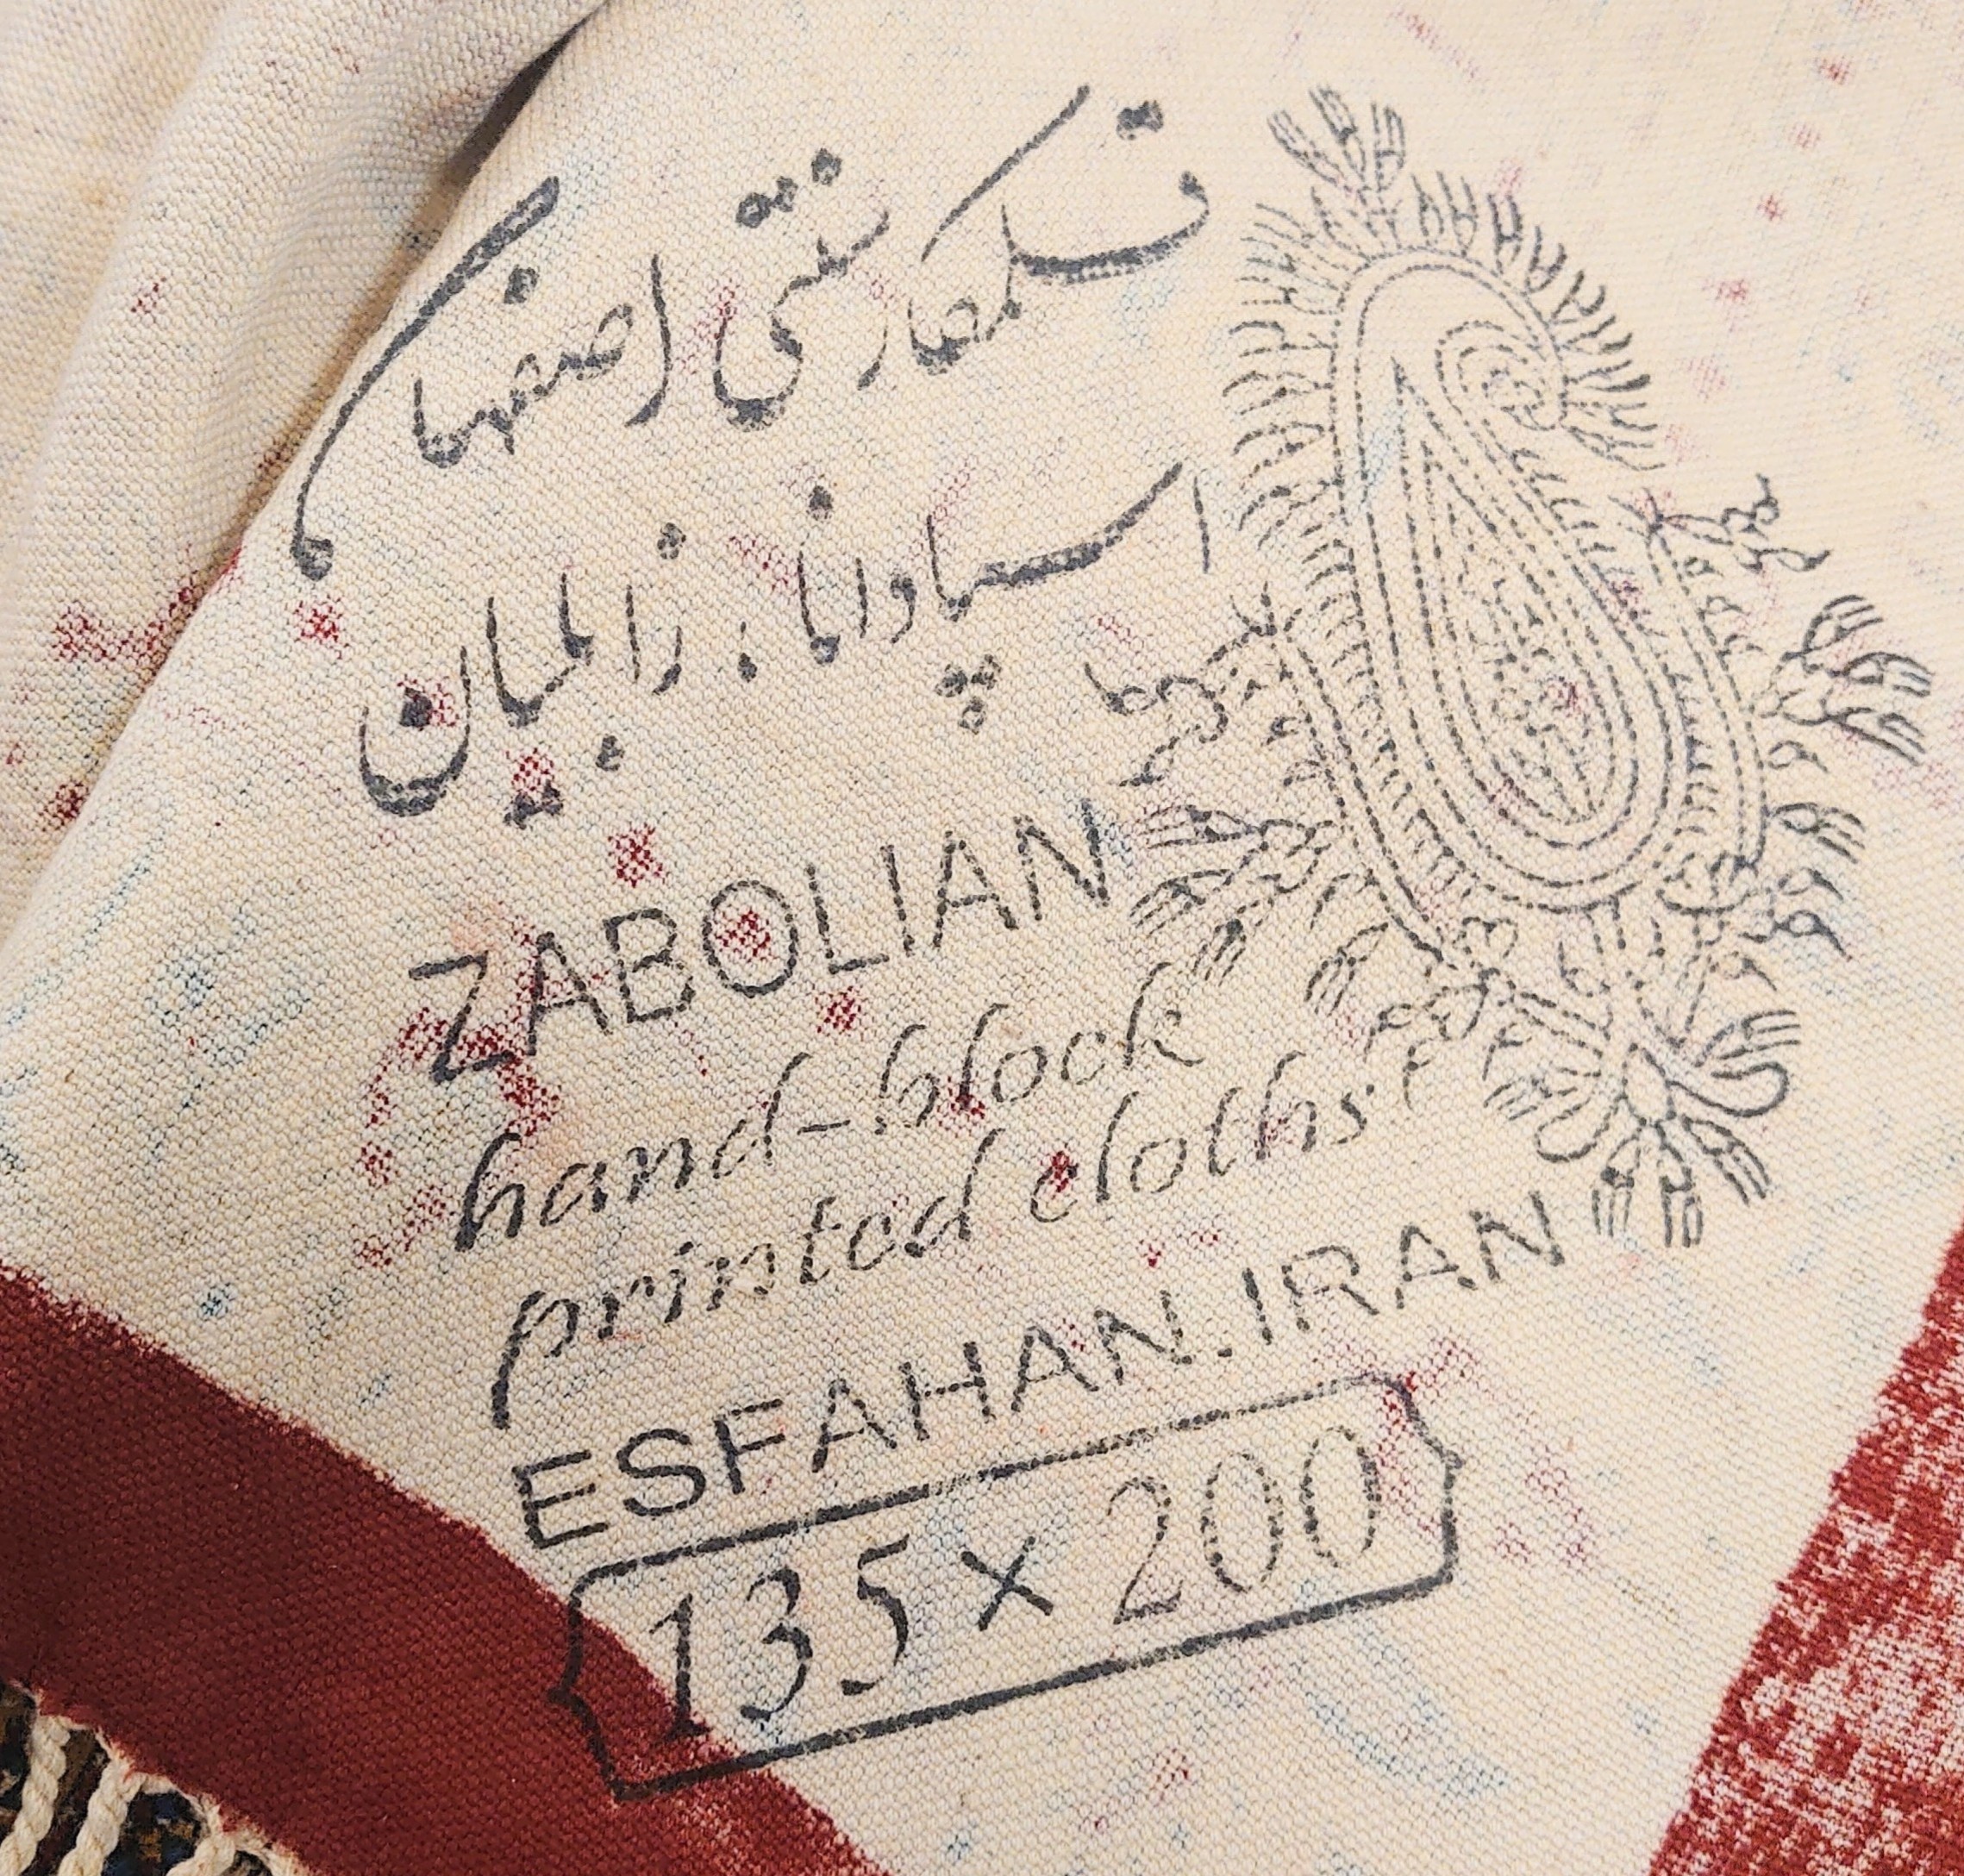 قلمکار سنتی اصفهان
اسپادانا . زابلیان
ZABOLIAN
hand-block
printed cloths
ESFAHAN.IRAN
135 x 200